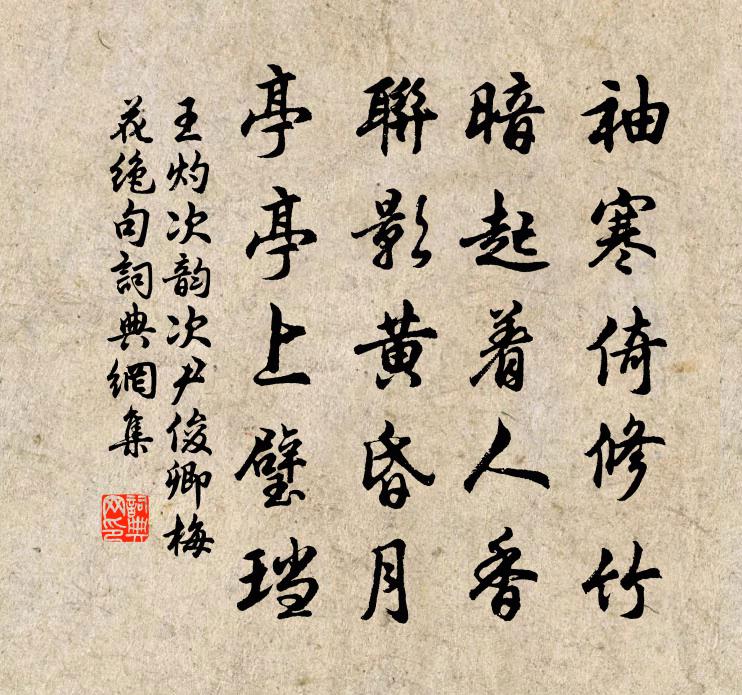 袖寒倚修竹
暗起着人香
聯影黄昏月
亭亭上璧珰
王灼次韵次尹俊卿梅
花绝句詞典網集
詞典
网印